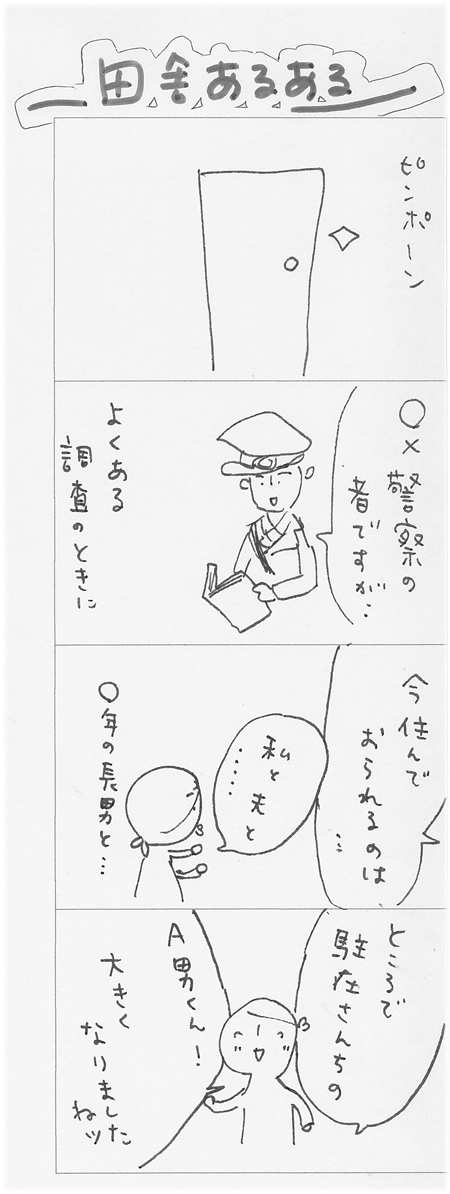 田舎あるある
ピンポーン
○×警察の
者ですが‥
よくある
調査のときに
今住んで
おられるのは
…
私と夫と
……
○年の長男と…
ところで
駐在さんちの
A男くん！
大きく
なりました
ねッ